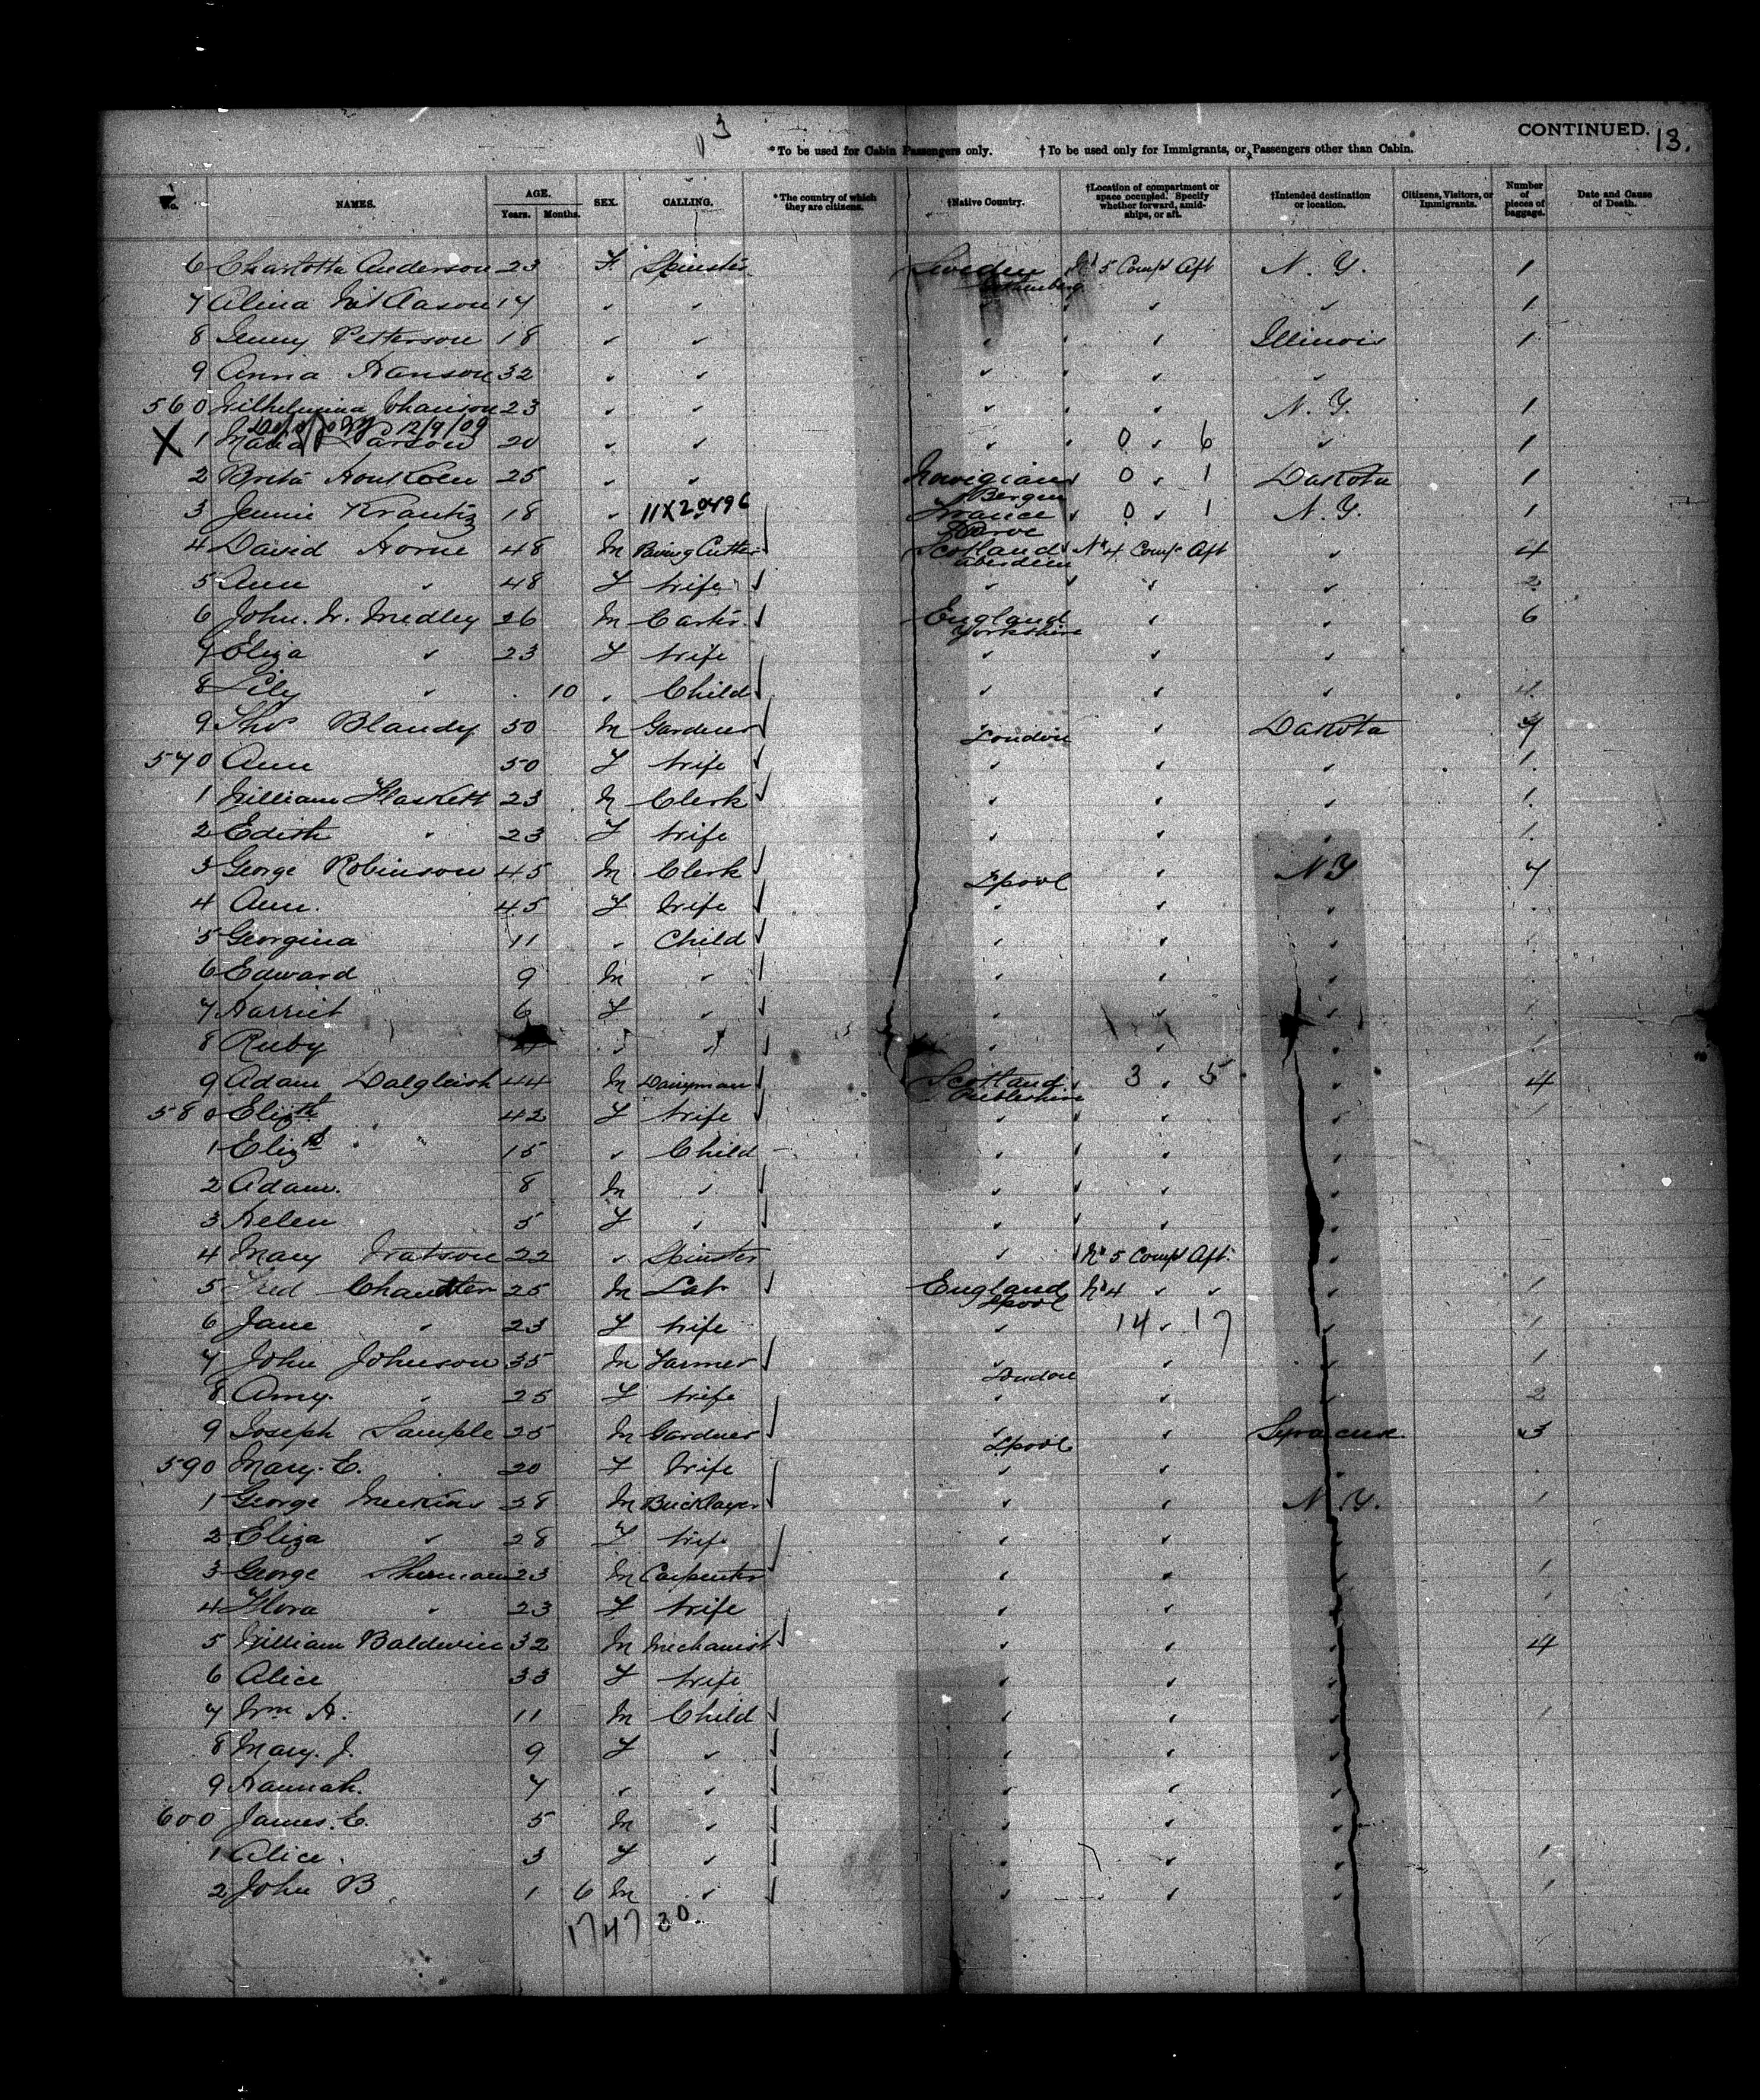 3
CONTINUED. 13.
*To be used for Cabin Passengers only. †To be used only for Immigrants, or Passengers other than Cabin.
No. NAMES. AGE. Years. Months. SEX. CALLING. *The country of which they are citizens. †Native Country. †Location of compartment or space occupied. Specify whether forward, amidships, or aft. †Intended destination or location. Citizens, Visitors, or Immigrants. Number of pieces of baggage. Date and Cause of Death.
6 Charlotta Anderson 23 F Spinster Sweden Gothenberg No 5 Compt Aft N. Y. 1
7 Alina Niklason 17 " " " " " " 1
8 Jenny Petterson 18 " " " " " Illinois 1
9 Anna Hanson 32 " " " " " "
560 Wilhelmina Johanson 23 " " " " " N. Y. 1
12/9/09
X 1 Maria Larson 20 " " " " 0 " 6 " 1
2 Brita 25 " " Norwigian Bergen " 0 " 1 Dakota 1
3 Jennie Krantz 18 " 11X20496 France Havre " 0 " 1 N. Y. 1
4 David Horne 48 M Cutter Scotland Aberdeen No 4 Compt Aft " 4
5 Ann " 48 F Wife " " " " 2
6 John. W. Medley 26 M Carter England Yorkshire " " 6
7 Eliza " 23 F Wife " " "
8 Lily " 10 " Child " " "
9 Thos Blandy 50 M Gardner London " Dakota
570 Ann 50 F Wife " " " 1
1 William Haskett 23 M Clerk " " " 1
2 Edith " 23 F Wife " " " 1
3 George Robinson 45 M Clerk Lpool " N Y 7
4 Ann. 45 F Wife " " "
5 Georgina 11 " Child " " "
6 Edward 9 M " " " "
7 Harriet 6 F " " " "
8 Ruby " " " " "
9 Adam Dalgleish 44 M Dairyman Scotland Peebleshire " 3 " 5 " 4
580 Elizth 42 F Wife " " " "
1 Elizth 15 " Child " " " "
2 Adam. 8 M " " " " "
3 Helen 5 F " " " " "
4 Mary Watson 22 " Spinster " No 5 Compt Aft. "
5 Fred Chandler 25 M Lab England Lpool No 4 " " " 1
6 Jane " 23 F Wife " 14 " 17 " 1
7 John Johnson 35 M Farmer London " " 1
8 Amy. " 25 F Wife " " " 2
9 Joseph Sample 25 M Gardner Lpool " Syracuse 3
590 Mary. E. 20 F Wife " " "
1 George Meekins 28 M Bricklayer " " N. Y. 1
2 Eliza " 28 F Wife " " "
3 George Sherman 23 M Carpenter " " " 1
4 Flora " 23 F Wife " " " 1
5 William Baldwin 32 M Mechanist " " " 4
6 Alice 33 F Wife " " "
7 Wm H. 11 M Child " " " 1
8 Mary. J. 9 F " " " "
9 Hannah. 7 " " " " "
600 James. E. 5 M " " " "
1 Alice. 3 F " " " " 1
2 John B 1 6 M " " " " 1
17 47 30